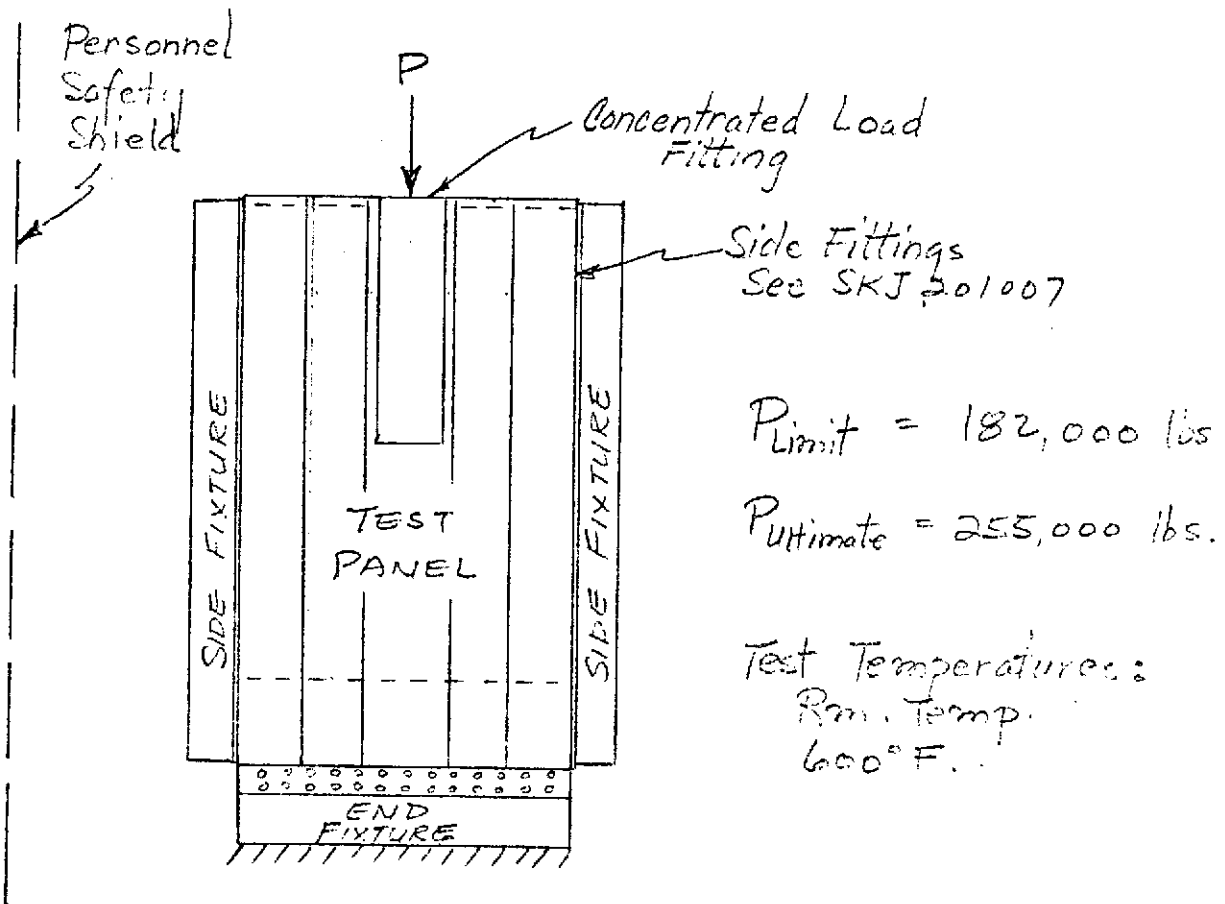 Personnel
Safety
Shield
P
Concentrated Load
Fitting
Side Fittings
See SKJ 201007
SIDE FIXTURE
TEST
PANEL
SIDE FIXTURE
PLimit = 182,000 lbs
PUltimate = 255,000 lbs.
Test Temperatures:
Rm. Temp.
600°F.
END
FIXTURE